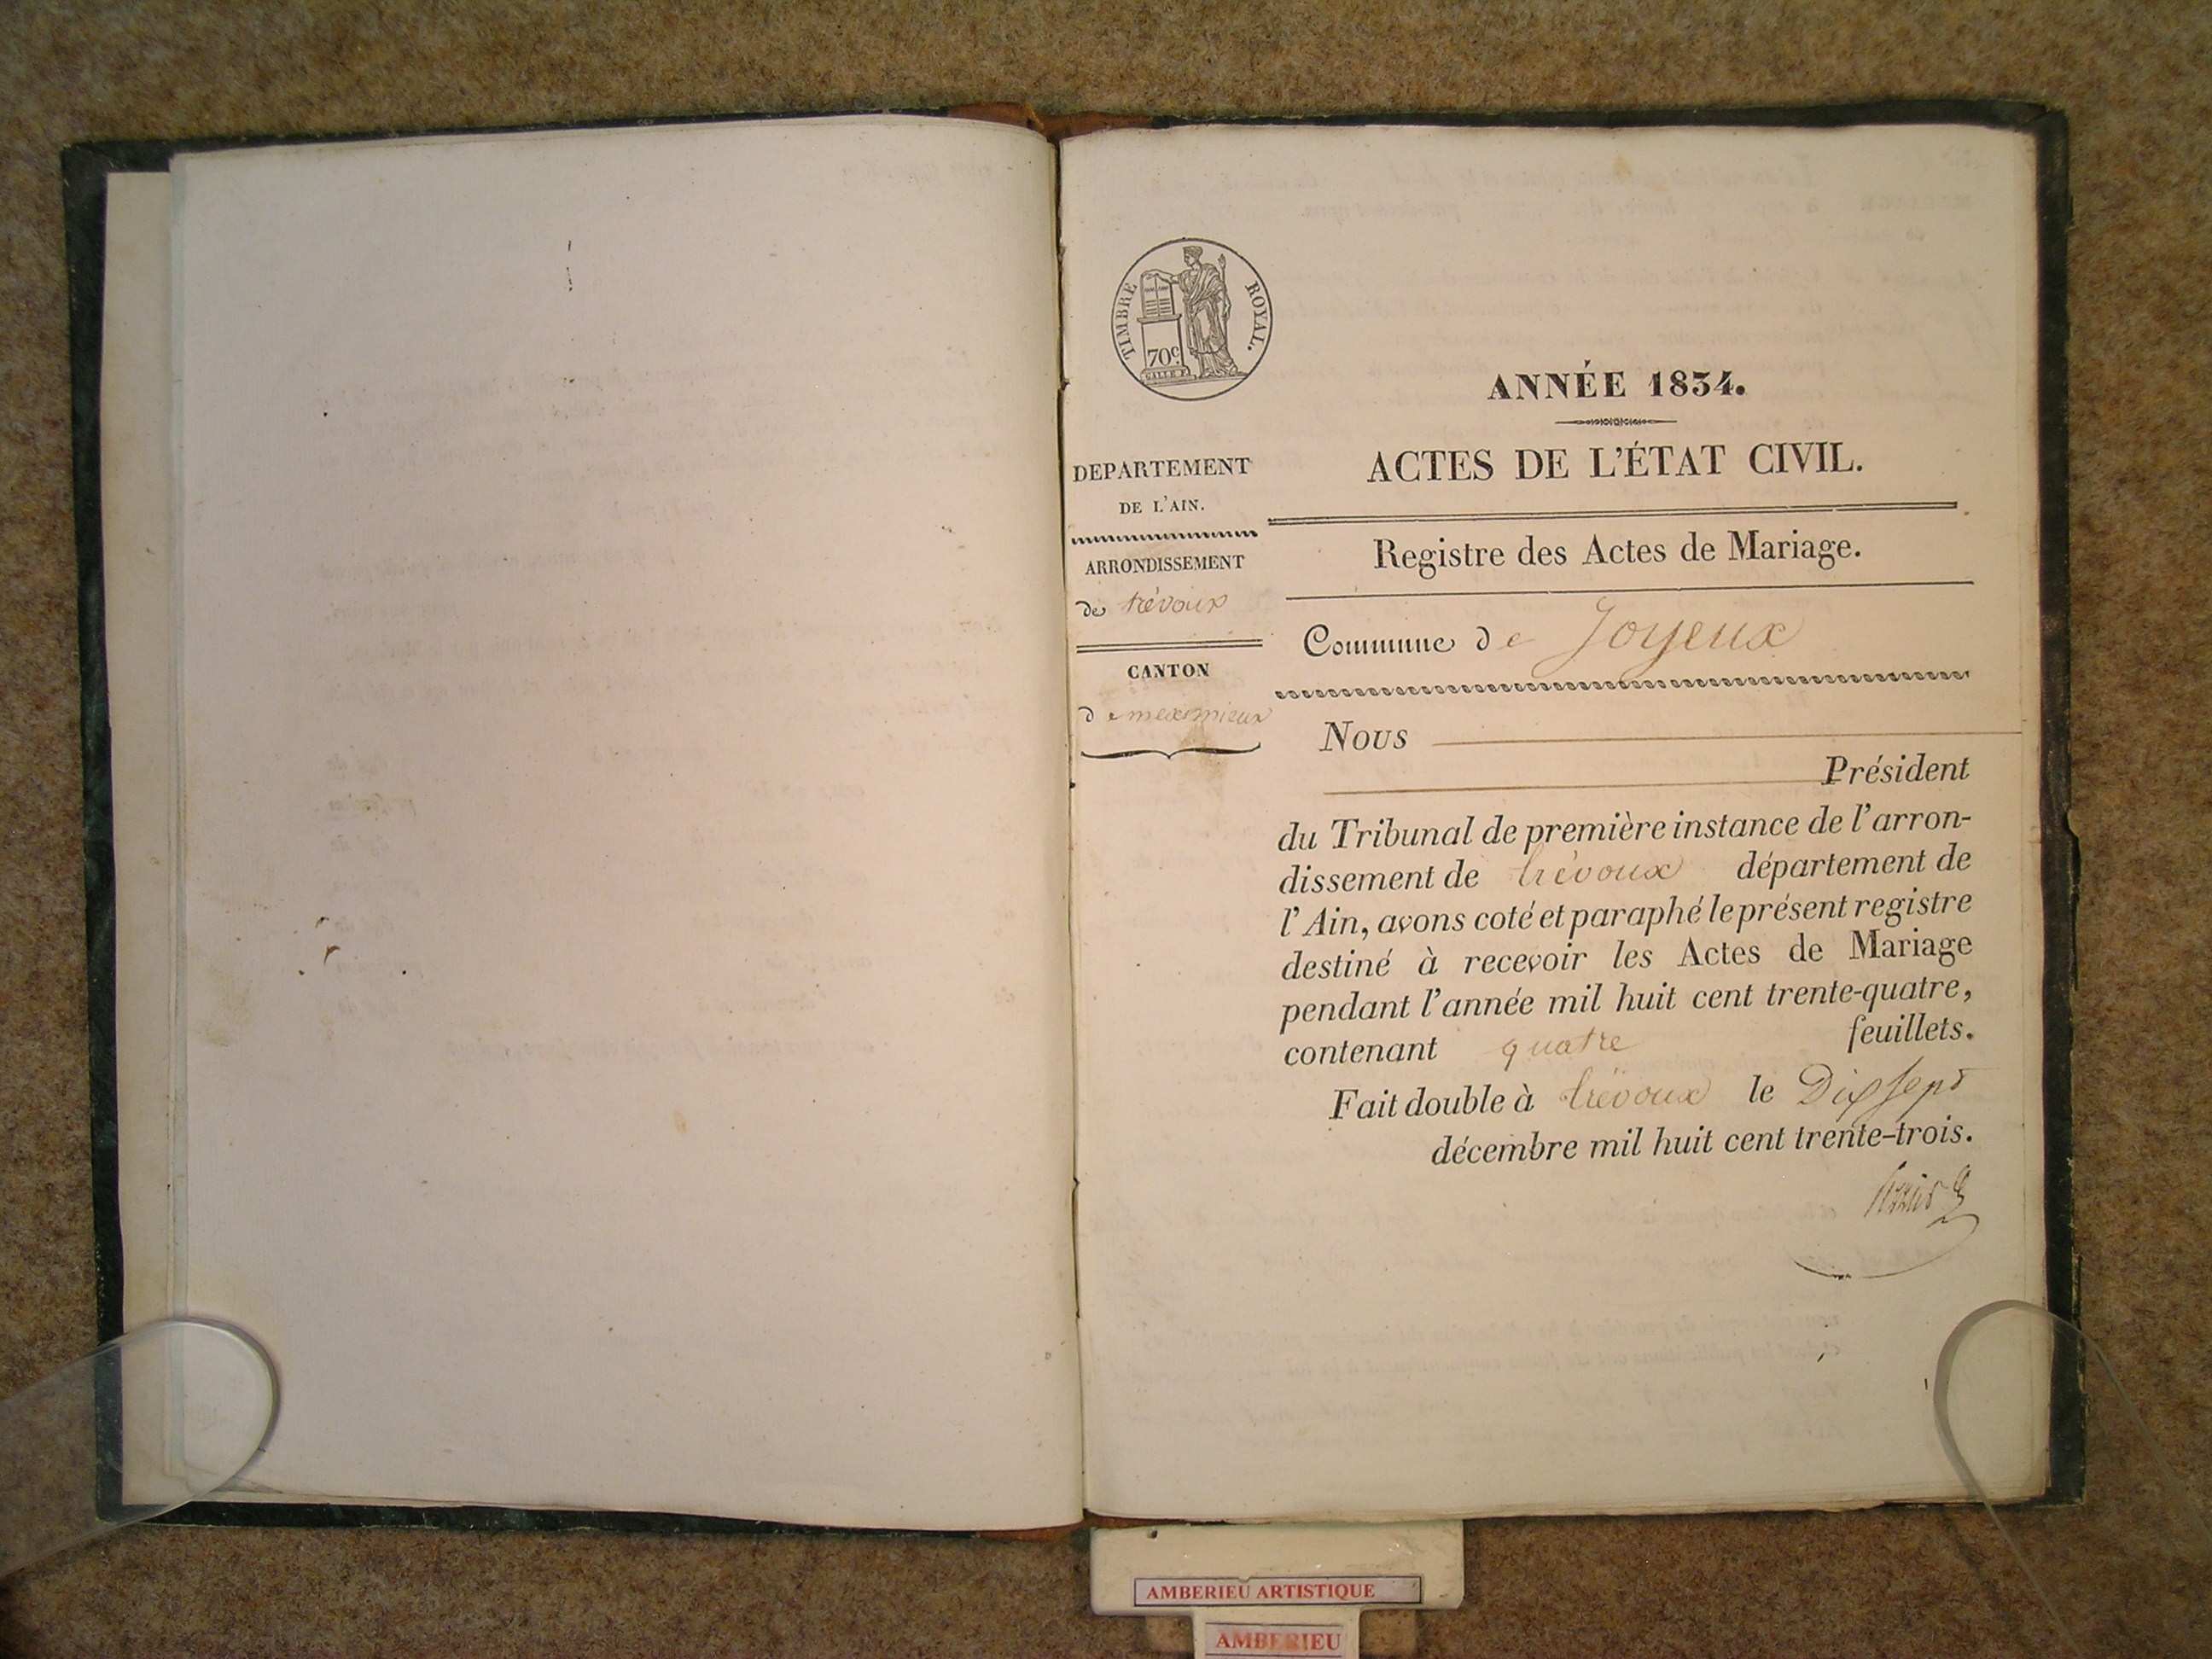 TIMBRE ROYAL.
70c.
ANNÉE 1834.
ACTES DE L'ÉTAT CIVIL.
DEPARTEMENT
DE L'AIN.
ARRONDISSEMENT
de trévoux
CANTON
de meximieux
Registre des Actes de Mariage.
Commune de Joyeux
Nous
Président
du Tribunal de première instance de l'arron-
dissement de trévoux département de
l'Ain, avons coté et paraphé le présent registre
destiné à recevoir les Actes de Mariage
pendant l'année mil huit cent trente-quatre,
contenant quatre feuillets.
Fait double à trévoux le Dix sept
décembre mil huit cent trente-trois.
AMBERIEU ARTISTIQUE
AMBERIEU